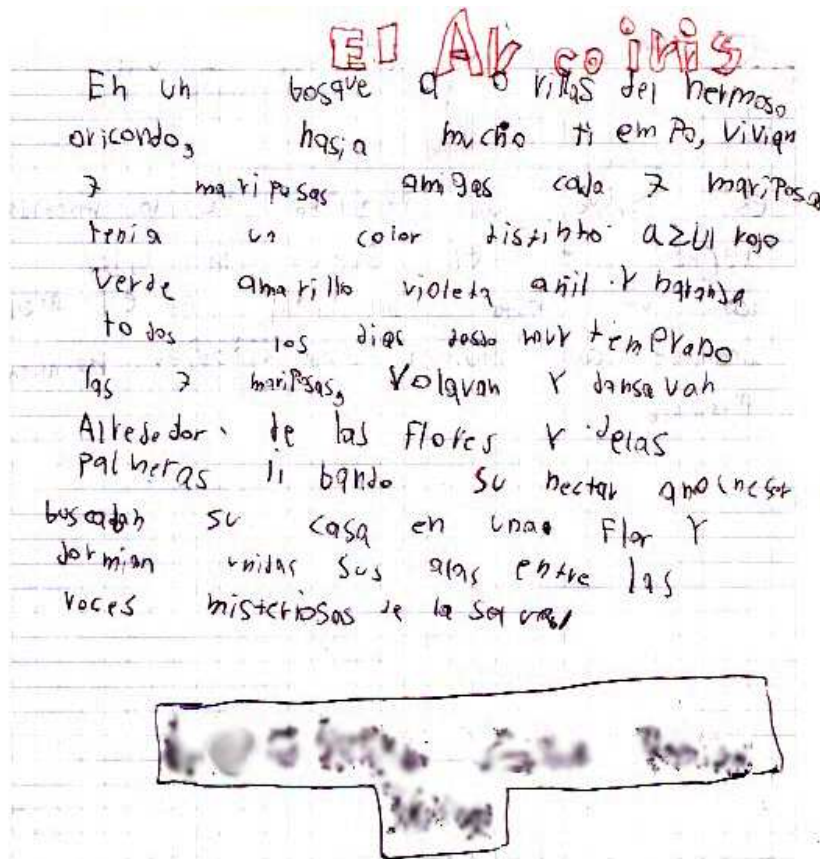 El Ar co iris
En un bosque a o rillas del hermoso
oricondo, hasia mucho ti em Po, vivian
7 mariposas amigas cada 7 mariposa
tenia un color distinto azul rojo
verde amarillo violeta añil y naranja
to dos los dias desde muy temprano
las 7 mariposas, volavan y dansavan
Alrededor de las flores y delas
palneras li bando su nectar
buscaban su casa en una flor y
dormian unidas sus alas entre las
voces misteriosas de la